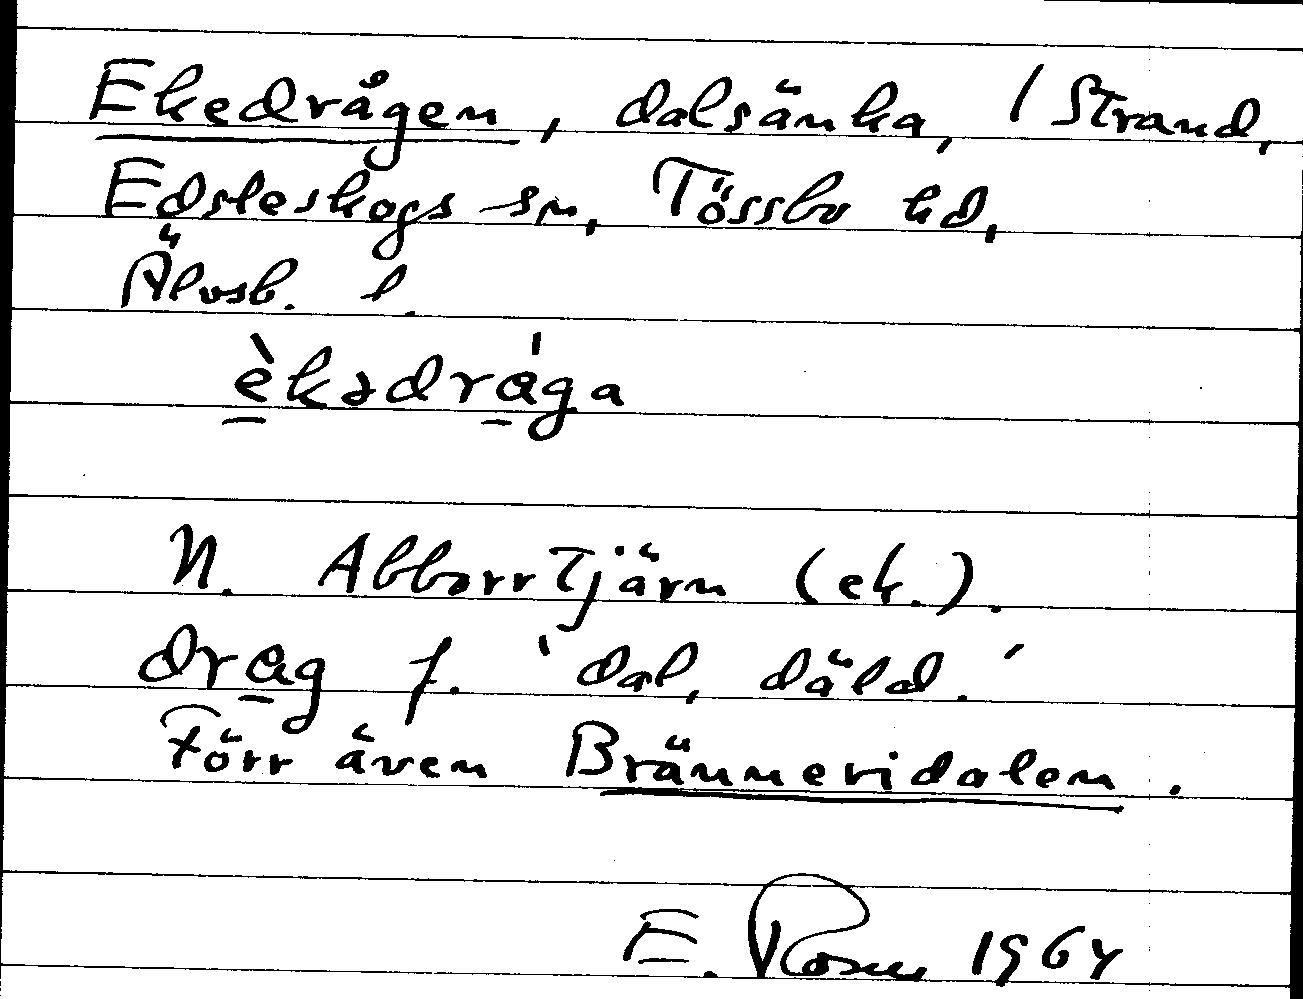 Ekedrågen, dalsänka, 1 Strand,
Edsleskogs sn, Tössbo hd,
Älvsb. l.
èkədrága
N. Abborrtjärn (ek.).
drag f. 'dal, däld.'
Förr även Bränneridalen.
E. Rosén 1964